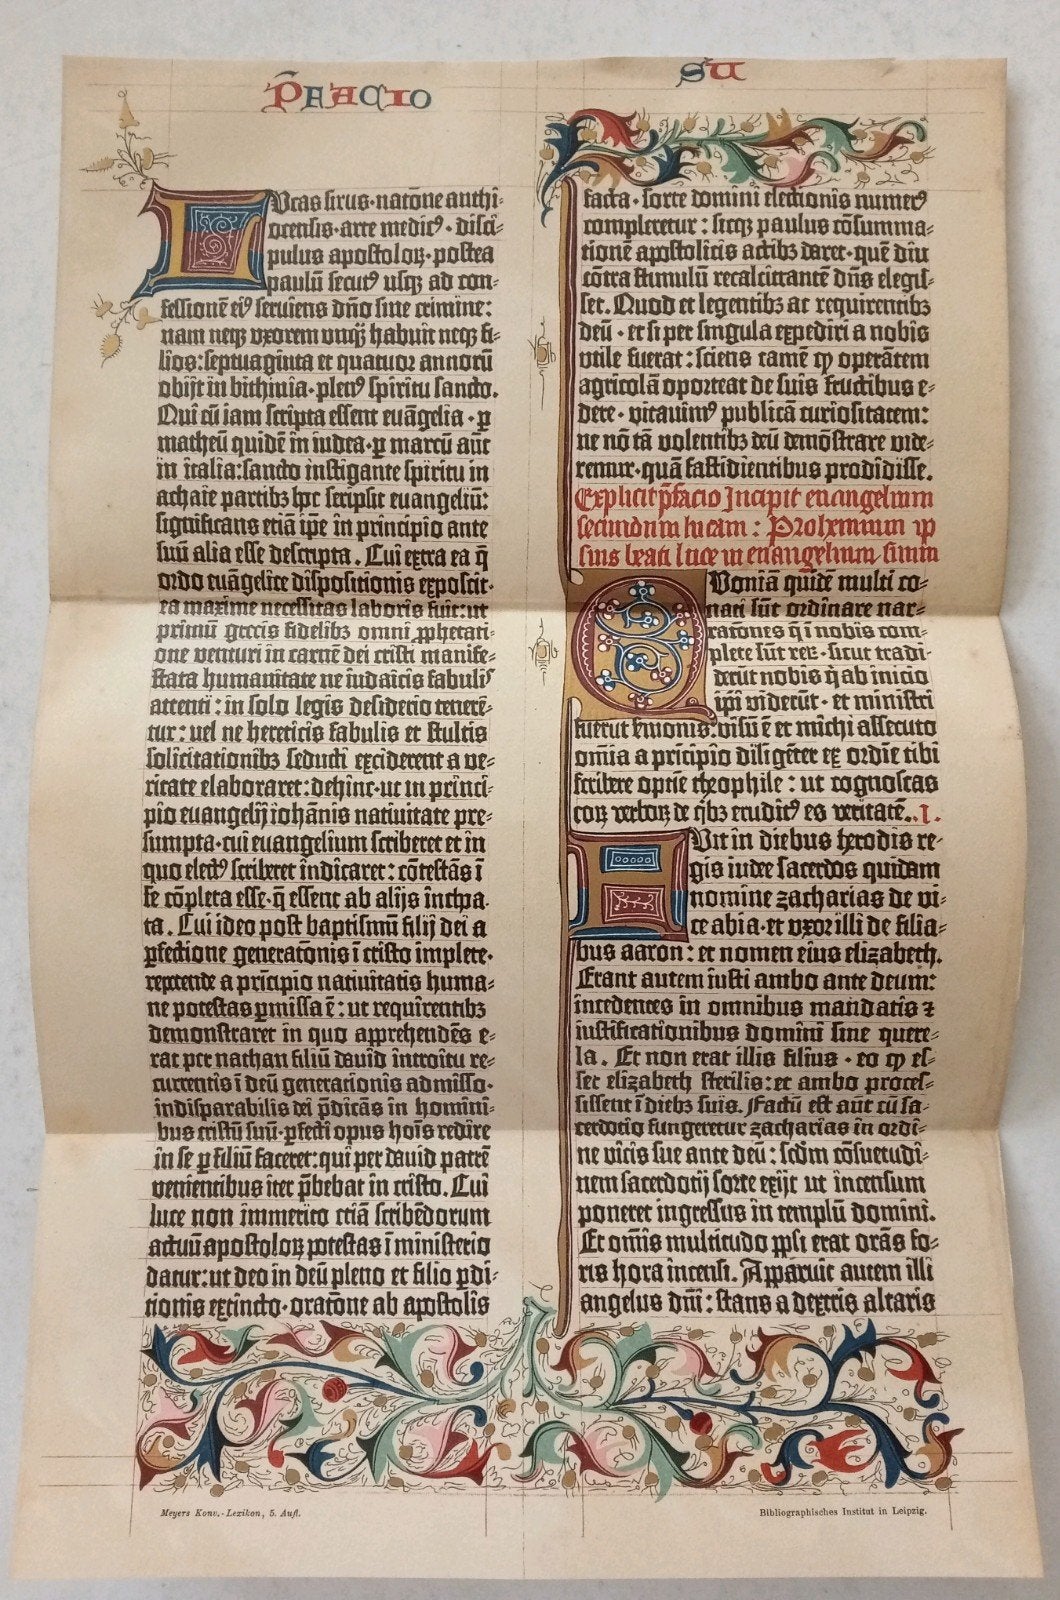 P̄FACIO
SU
Lucas sirus·natōne anthi-
ocensis·arte medicꝰ·disci-
pulus apostoloꝝ·postea
paulū secutꝰ usqꝫ ad con-
fessionē eiꝰ serviens dn̄o sine crimine:
nam neqꝫ vxorem unqz̄ habuit neqꝫ fi-
lios:septuaginta et quatuor annorū
obijt in bithinia·plenꝰ spiritu sancto.
Qui cū iam scripta essent euāgelia·ꝑ
matheū quidē in iudea·ꝑ marcū aūt
in italia:sancto instigante spiritu in
achaie partibꝫ hoc scripsit euangeliū:
significans etiā ip̄e in principio ante
suū alia esse descripta. Cui extra ea q̄
ordo euāgelice dispositionis exposcit·
ea maxime necessitas laboris fuit:ut
primū grecis fidelibꝫ omni ꝓphetati-
one venturi in carnē dei cristi manife-
stata humanitate ne iudaicis fabulis
attenti:in solo legis desiderio tenerē-
tur:vel ne hereticis fabulis et stultis
solicitationibꝫ seducti exciderent a ve-
ritate elaboraret:dehinc·ut in princi-
pio euangelij iohānis nativitate pre-
sumpta·cui euangelium scriberet et in
quo electꝰ scriberet indicaret:cōtestās ī
se cōpleta esse·q̄ essent ab alijs inchoa-
ta. Cui ideo post baptismū filij dei a
ꝑfectione generatōnis ī cristo implete·
repetende a prīcipio nativitatis huma-
ne potestas ꝑmissa ē:ut requirentibꝫ
demonstraret in quo apprehendēs e-
rat per nathan filiū david introitu re-
currentis ī deū generationis admisso·
indisparabilis dei p̄dicās in homini-
bus cristū suū·ꝑfecti opus hoīs redire
in se ꝑ filiū faceret:qui per david patrē
venientibus iter p̄bebat in cristo. Cui
luce non immerito etiā scribēdorum
actuū apostoloꝝ potestas ī ministerio
datur:ut deo in deū pleno et filio ꝑdi-
tionis extincto·oratōne ab apostolis
facta·sorte domini electionis numerꝰ
compleretur:sicqꝫ paulus cōsumma-
tionē apostolicis actibꝫ daret·quē diu
cōtra stimulū recalcitrantē dn̄s elegis-
set. Quod et legentibꝫ at requirentibꝫ
deū·et si per singula expediri a nobis
vtile fuerat:sciens tamē ꝙ operātem
agricolā oporteat de suis fructibus e-
dere·vitavimꝰ publicā curiositatem:
ne nō tā volentibꝫ deū demōstrare vide-
remur·quā fastidientibus prodidisse.
Explicit p̄facio Incipit euangelium
secundum lucam: Prohemium ip
sius beati luce in euangelium suum
Quoniā quidē multi co-
nati sūt ordinare nar-
ratōnes q̄ ī nobis com-
plete sūt reꝝ·sicut tradi-
derūt nobis q̇ ab inicio
ip̄i viderūt·et ministri
fuerūt smonis:visū ē et michi assecuto
omīa a prīcipio diligēter ex ordīe tibi
scribere optīe theophile:ut cognoscas
eoꝝ verboꝝ de q̇bꝫ eruditꝰ es veritatē. .I.
Fuit in diebus herodis re-
gis iudee sacerdos quidam
nomine zacharias de vi-
ce abia·et vxor illi de filia-
bus aaron:et nomen eius elizabeth.
Erant autem iusti ambo ante deum:
incedentes in omnibus mandatis ⁊
iustificationibus domini sine quere-
la. Et non erat illis filius·eo ꝙ es-
set elizabeth sterilis:et ambo proces-
sissent ī diebꝫ suis. Factū est aūt cū sa-
cerdotio fungeretur zacharias in ordi-
ne vicis sue ante deū:scdm̄ cōsuetudi-
nem sacerdotij sorte exijt ut incensum
poneret ingressus in templū domini.
Et om̄is multitudo ppl̄i erat orās fo-
ris hora incensi. Apparuit autem illi
angelus dn̄i:stans a dextris altaris
Meyers Konv.-Lexikon, 5. Aufl.
Bibliographisches Institut in Leipzig.